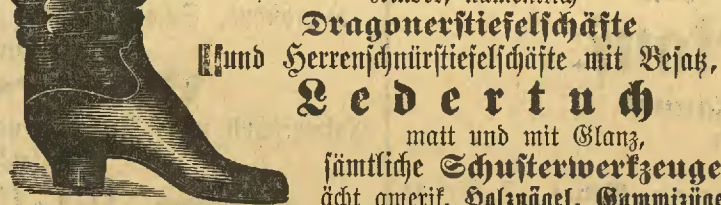 Dragonerstiefelschäfte
und Herrenschnürstiefelschäfte mit Besatz,
Ledertuch
matt und mit Glanz,
sämtliche Schusterwerkzeuge
ächt amerik. Holznägel, Gummizüge